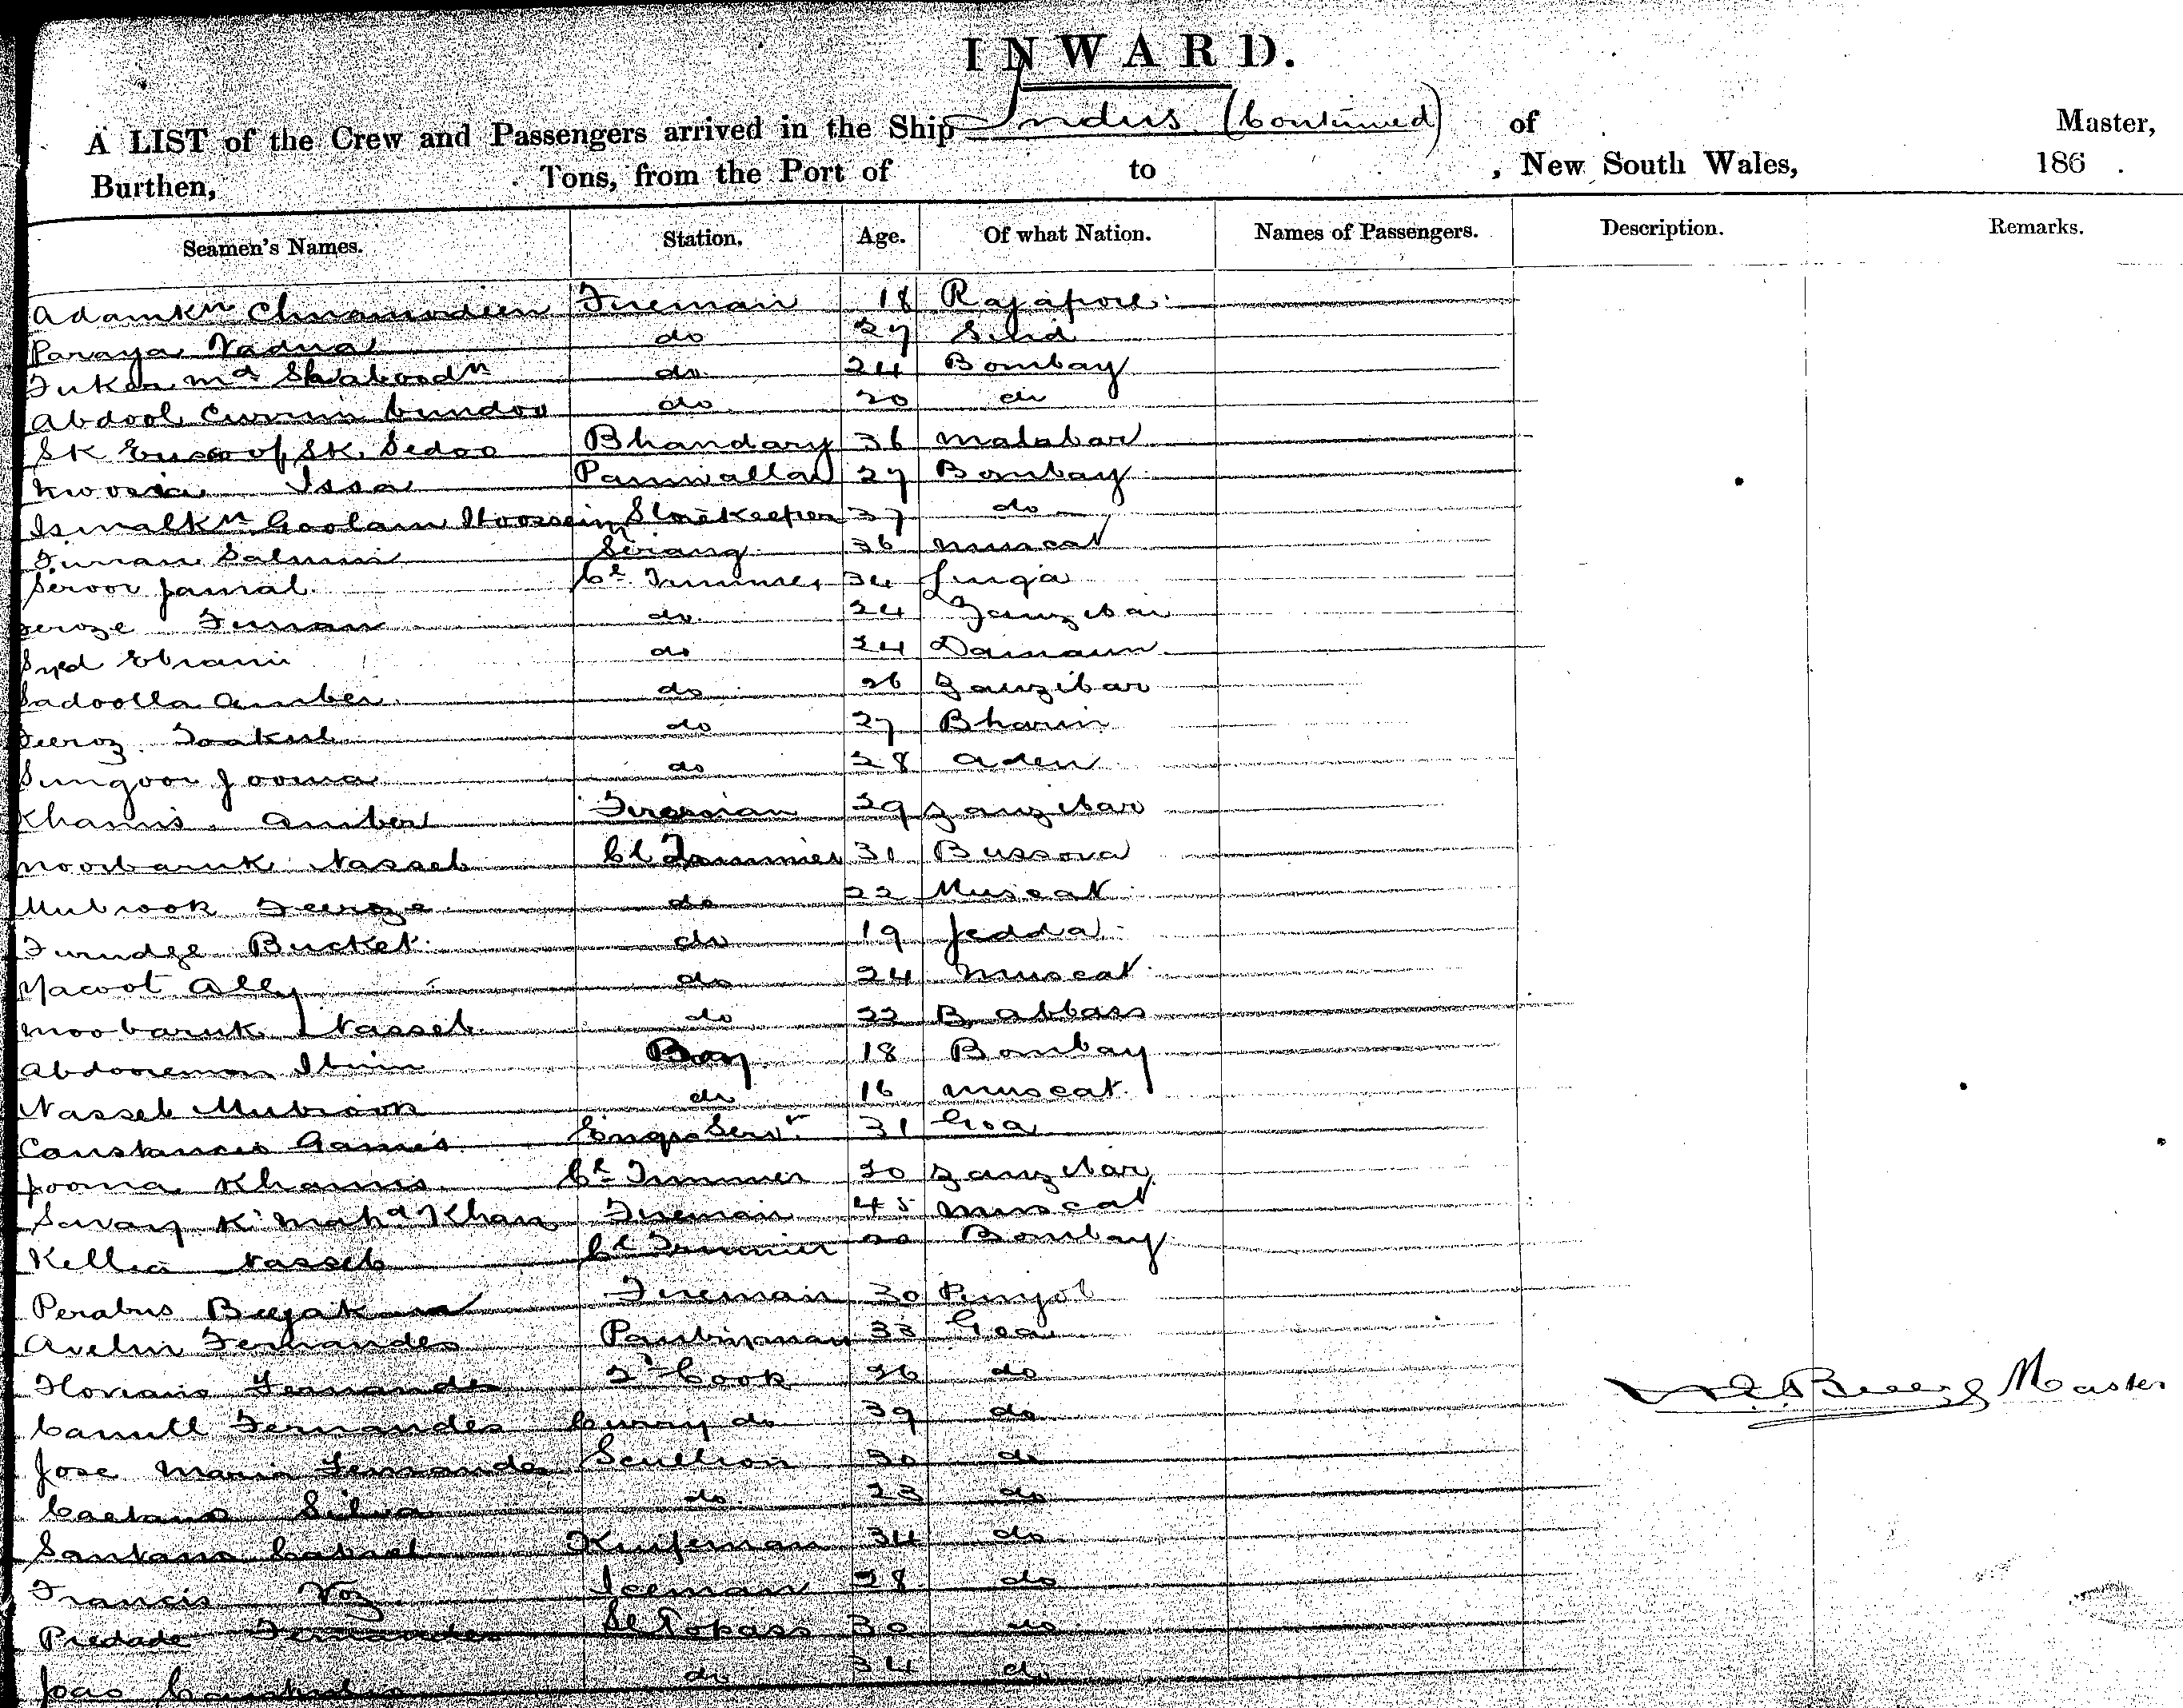 INWARD.
A LIST of the Crew and Passengers arrived in the Ship Indus (Continued) of Master,
Burthen, Tons, from the Port of to , New South Wales, 186 .
Seamen's Names. Station. Age. Of what Nation. Names of Passengers. Description. Remarks.
Adamkn Fireman 18 Rajapore
do 27
do 24 Bombay
Abdool Currim Cundoo do 20 do
SK SK Sedoo Bhandary 36 Malabar
Moosa Issa Panniwallah 27 Bombay
Ismalkn Goolam Hoossein Storekeeper 37 do
Salmin Serang 36 Muscat
Seroor Jamal Cl Trimmer 34
do 24 Zanzibar
Syed Ebram do 24 Damaun
Sadoolla Amber do 26 Zanzibar
Feeroz Toakul do 27 Bharin
Sungoor Jooma do 28 Aden
Khamis Amber Fireman 29 Zanzibar
Moobaruk Nasseb Cl Trimmer 31 Bussora
Mubrook Feeroze do 22 Muscat
Bucket do 19 Jedda
Yacoot Ally do 24 Muscat
Moobaruk Nasseb do 22 B Abbass
Boy 18 Bombay
Nasseb Mubrook do 16 Muscat
Engrs Servt 31 Goa
Jooma Khamis Cl Trimmer 20 Zanzibar
Mahd Khan Fireman 45 Muscat
Nasseb Cl Trimmer 20 Bombay
Fireman 30
Avelin Fernandes Pantryman 33 Goa
Fernandes 2d Cook 26 do
Fernandes Curry do 39 do
Jose Maria Fernandes Scullion 30 do
Caetano Silva do 23 do
Santano Knifeman 34 do
Francis Voz Iceman 28 do
Fernandes Topass 30 do
Joao do 34 do
Master